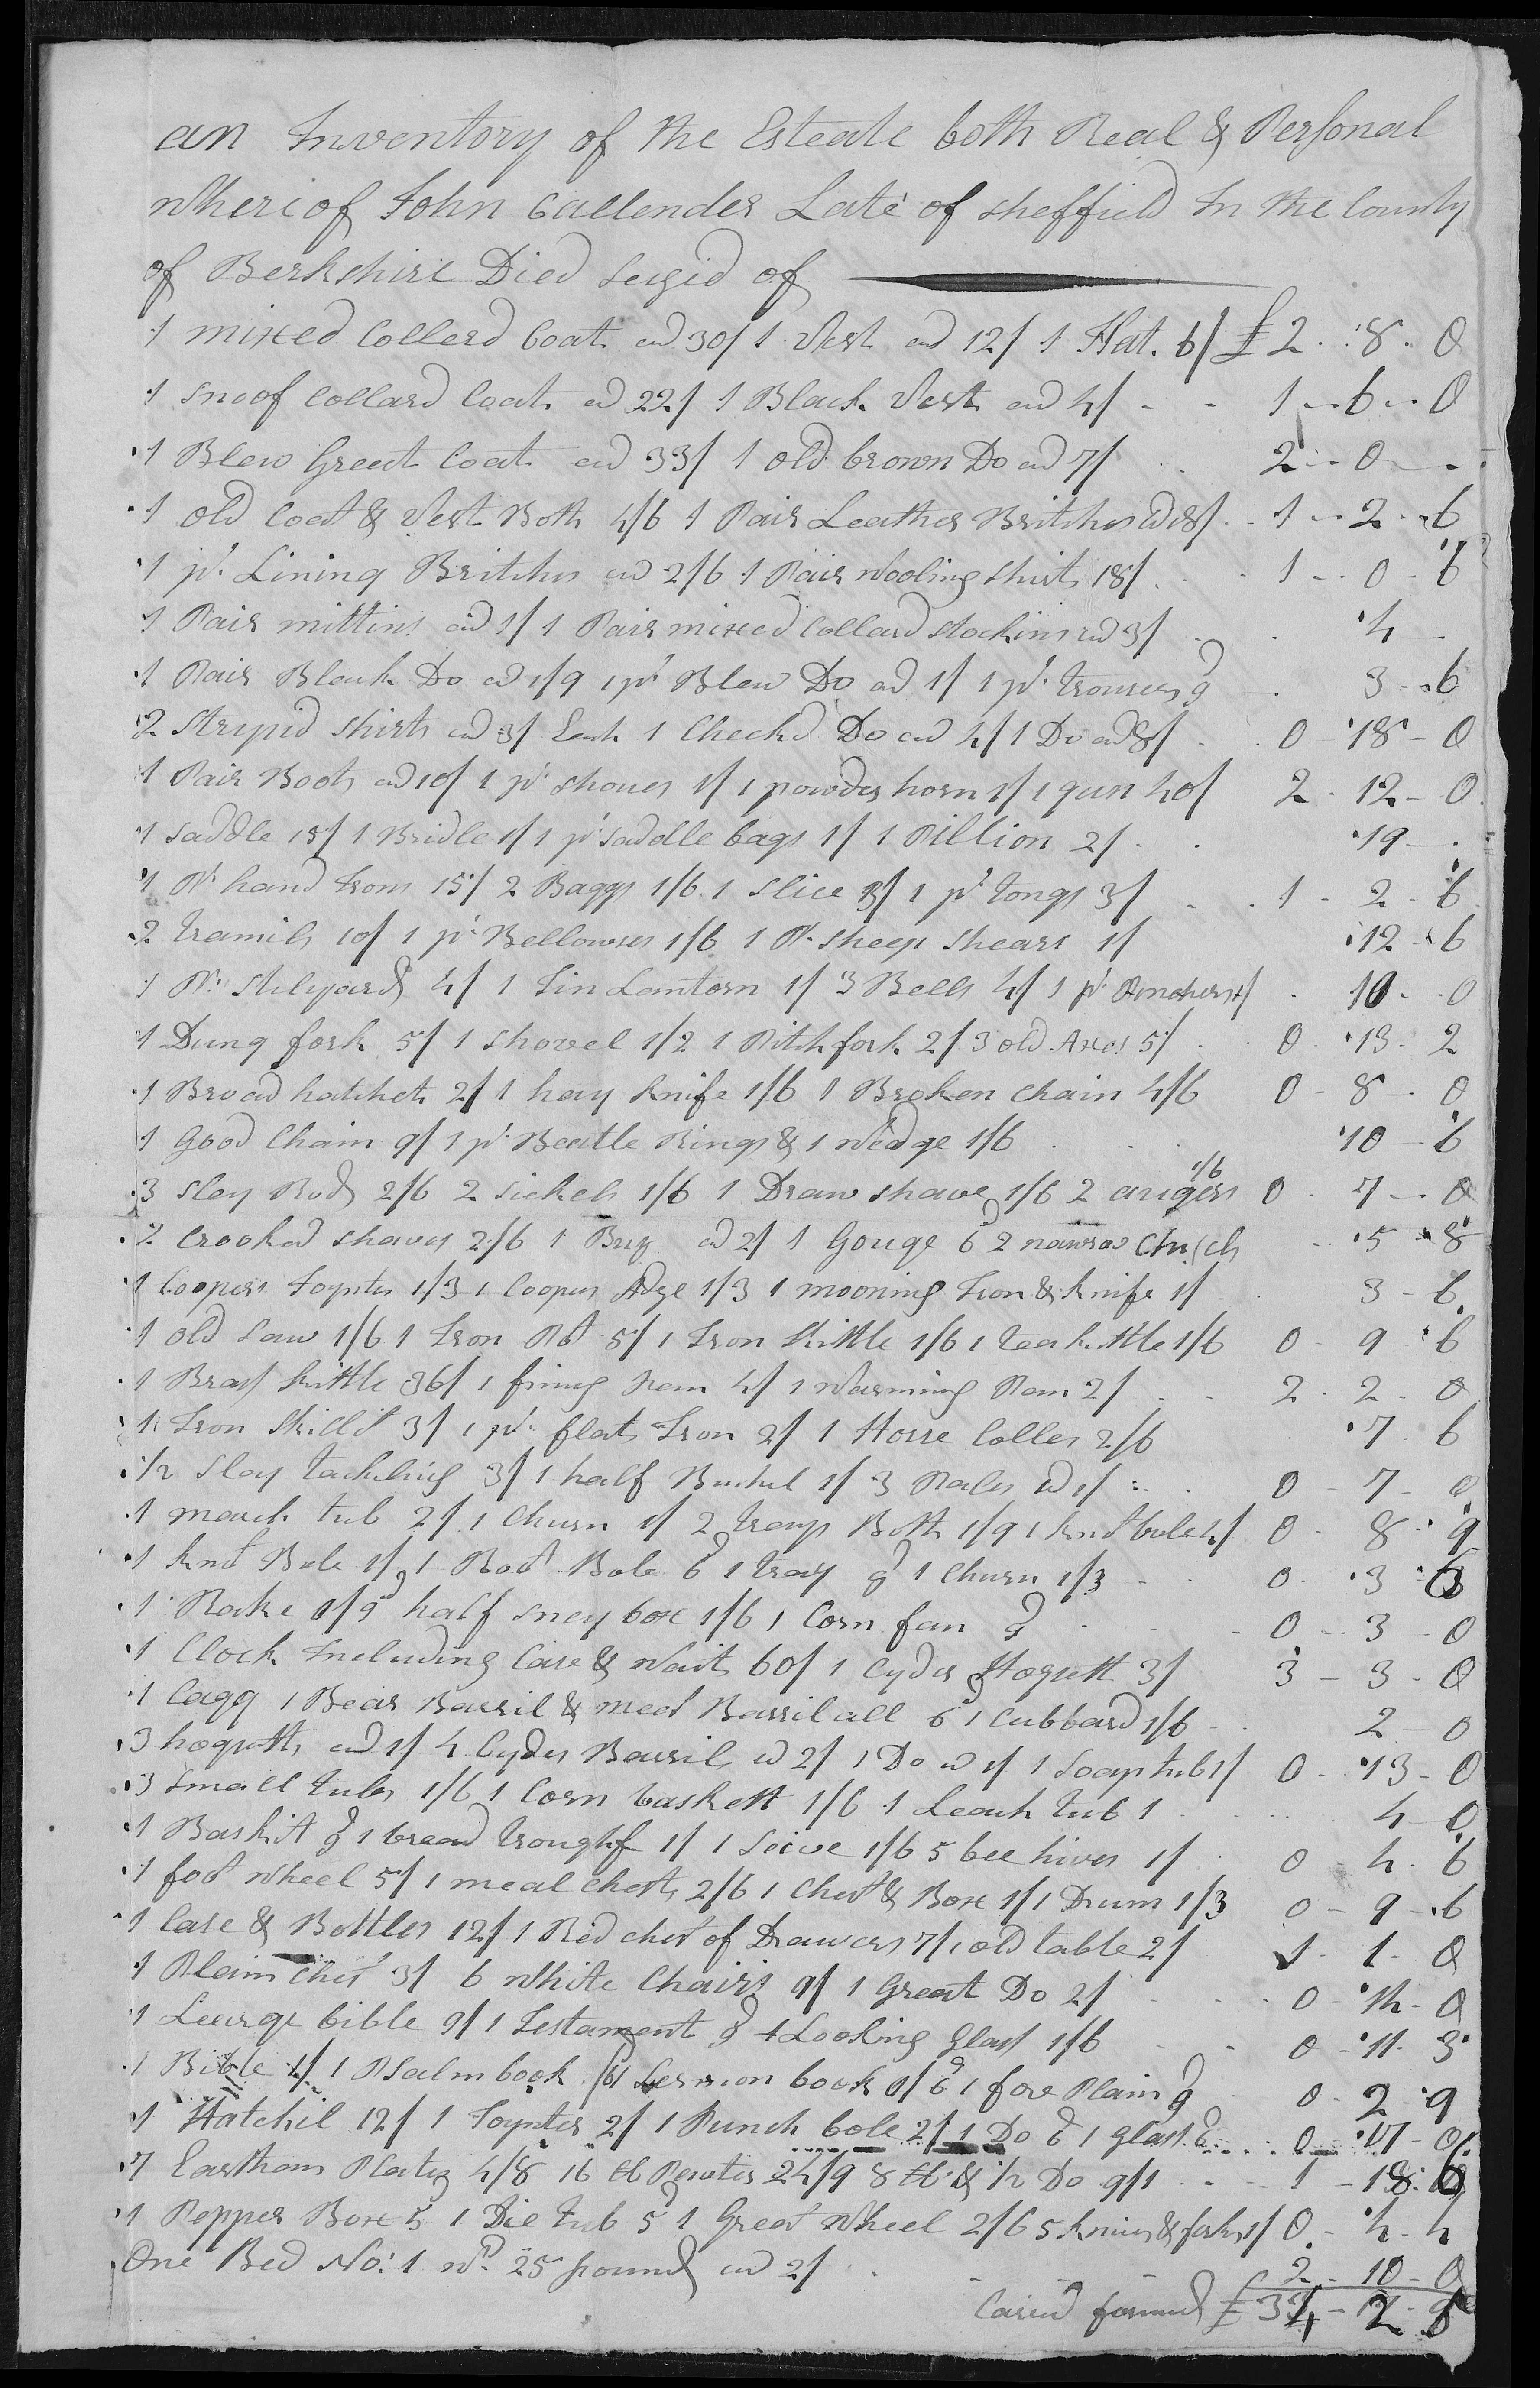 an Inventory of the Esteate both Real & Personal
Whereof John Callender Late of Sheffield In the County
of Berkshire Died Seizid of
1 mixed Collerd Coat ad 30/ 1 Vest ad 12/ 1 Hat. 6/ £2 . 8 . 0
1 snoof Collard Coat ad 22/ 1 Black Vest ad 4/ - - 1 - 6 - 0
1 Blew Great Coat ad 33/ 1 old brown Do ad 7/ 2 - 0 -
1 old Coat & Vest Both 4/6 1 Pair Leather Britches ad 18/ 1 - 2 - 6
1 pr. Lining Britches ad 2/6 1 Pair Wooling Shirts 18/ 1 - 0 - 6
1 Pair mittins ad 1/ 1 Pair mixed Collard Stockins ad 3/ 4 -
1 Pair Black Do ad 1/9 1 pr Blew Do ad 1/ 1 pr. trouses 9d 3 - 6
2 Strypid Shirts ad 3/ Each 1 Checkd Do ad 4/ 1 Do ad 8/ 0 - 18 - 0
1 Pair Boots ad 10/ 1 pr shoues 1/ 1 powder horn 1/ 1 gun 40/ 2 - 12 - 0
1 saddle 15/ 1 Bridle 1/ 1 pr saddle bags 1/ 1 Pillion 2/ 19 -
1 Pr hand Irons 15/ 2 Baggs 1/6 1 Slice 3/ 1 pr tongs 3/ 1 - 2 - 6
2 tramils 10/ 1 pr Bellowses 1/6 1 Pr sheep shears 1/ 12 - 6
1 Pr Stilyards 4/ 1 Tin Lantorn 1/ 3 Bells 4/ 1 pr Pinchers 1/ 10 - 0
1 Dung fork 5/ 1 shovel 1/2 1 Pitchfork 2/ 3 old Axes 5/ 0 - 13 - 2
1 Broad hatchet 2/ 1 hay Knife 1/6 1 Broken Chain 4/6 0 - 8 - 0
1 Good Chain 9/ 1 pr. Beatle Rings & 1 Wedge 1/6 10 - 6
3 Slay Rods 2/6 2 Sickels 1/6 1 Draw shave 1/6 2 augers 1/6 0 - 7 - 0
2 Crooked shaves 2/6 1 ad 2/ 1 Gouge 6d 2 narrow 5 - 8
1 Coopers Joynter 1/3 1 Coopers Adze 1/3 1 mooning Iron & Knife 1/ 3 - 6
1 old Saw 1/6 1 Iron Pot 5/ 1 Iron Kittle 1/6 1 teakittle 1/6 0 - 9 - 6
1 Brass Kittle 36/ 1 friing Pan 4/ 1 Warming Pan 2/ 2 - 2 - 0
1 Iron Skillit 3/ 1 pr. flats Iron 2/ 1 Horse Coller 2/6 7 - 6
1/2 Slay tackeling 3/ 1 half Bushel 1/ 3 Pales ad 1/ 0 - 7 - 0
1 mash tub 2/ 1 Churn 1/ 2 trays Both 1/9 1 Knot bole 4/ 0 - 8 - 9
1 Knot Bole 1/ 1 Root Bole 6d 1 tray 9d 1 Churn 1/3 0 - 3 - 6
1 Rake 1/9d half sney box 1/6 1 Corn fan 9d 0 - 3 - 0
1 Clock Including Case & Waits 60/ 1 Cyder Hogsett 3/ 3 - 3 - 0
1 Cagg 1 Bear Barril & meet Barril all 6d 1 Cubbard 1/6 2 - 0
3 hogsetts ad 1/ 4 Cyder Barrils ad 2/ 1 Do ad 1/ 1 Soaptub 1/ 0 - 13 - 0
3 Small tubs 1/6 1 Corn baskett 1/6 1 Leach tub 1 4 - 0
1 Baskit 9d 1 bread troughf 1/ 1 Seive 1/6 5 bee hives 1/ 0 - 4 - 6
1 foot wheel 5/ 1 meal chest 2/6 1 Chest & Box 1/ 1 Drum 1/3 0 - 9 - 6
1 Case & Bottles 12/ 1 Red chest of Drawers 7/ 1 old table 2/ 1 - 1 - 0
1 Plain chest 3/ 6 White Chairs 9/ 1 Great Do 2/ 0 - 14 - 0
1 Learge bible 9/ 1 Testament 9d 1 Looking Glass 1/6 0 - 11 - 3
1 Bible 1/ 1 Psalm book /6 1 Sermon book 1/6d 1 fore Plain 9d 0 - 2 - 9
1 Hatchil 12/ 1 Joynter 2/ 1 Punch bole 2/ 1 Do 6d 1 Glass 6d 0 - 17 - 0
7 Earthan Plates 4/8 16 lb Pewter 24/9 8 lb & 1/2 Do 9/1 1 - 18 - 6
1 Pepper Box 5 1 Die tub 5 1 Great Wheel 2/6 5 Knives & forks 1/ 0 - 4 - 4
One Bed No. 1 wt. 25 pounds ad 2/ 2 - 10 - 0
Caried forward £34 - 2 - 8